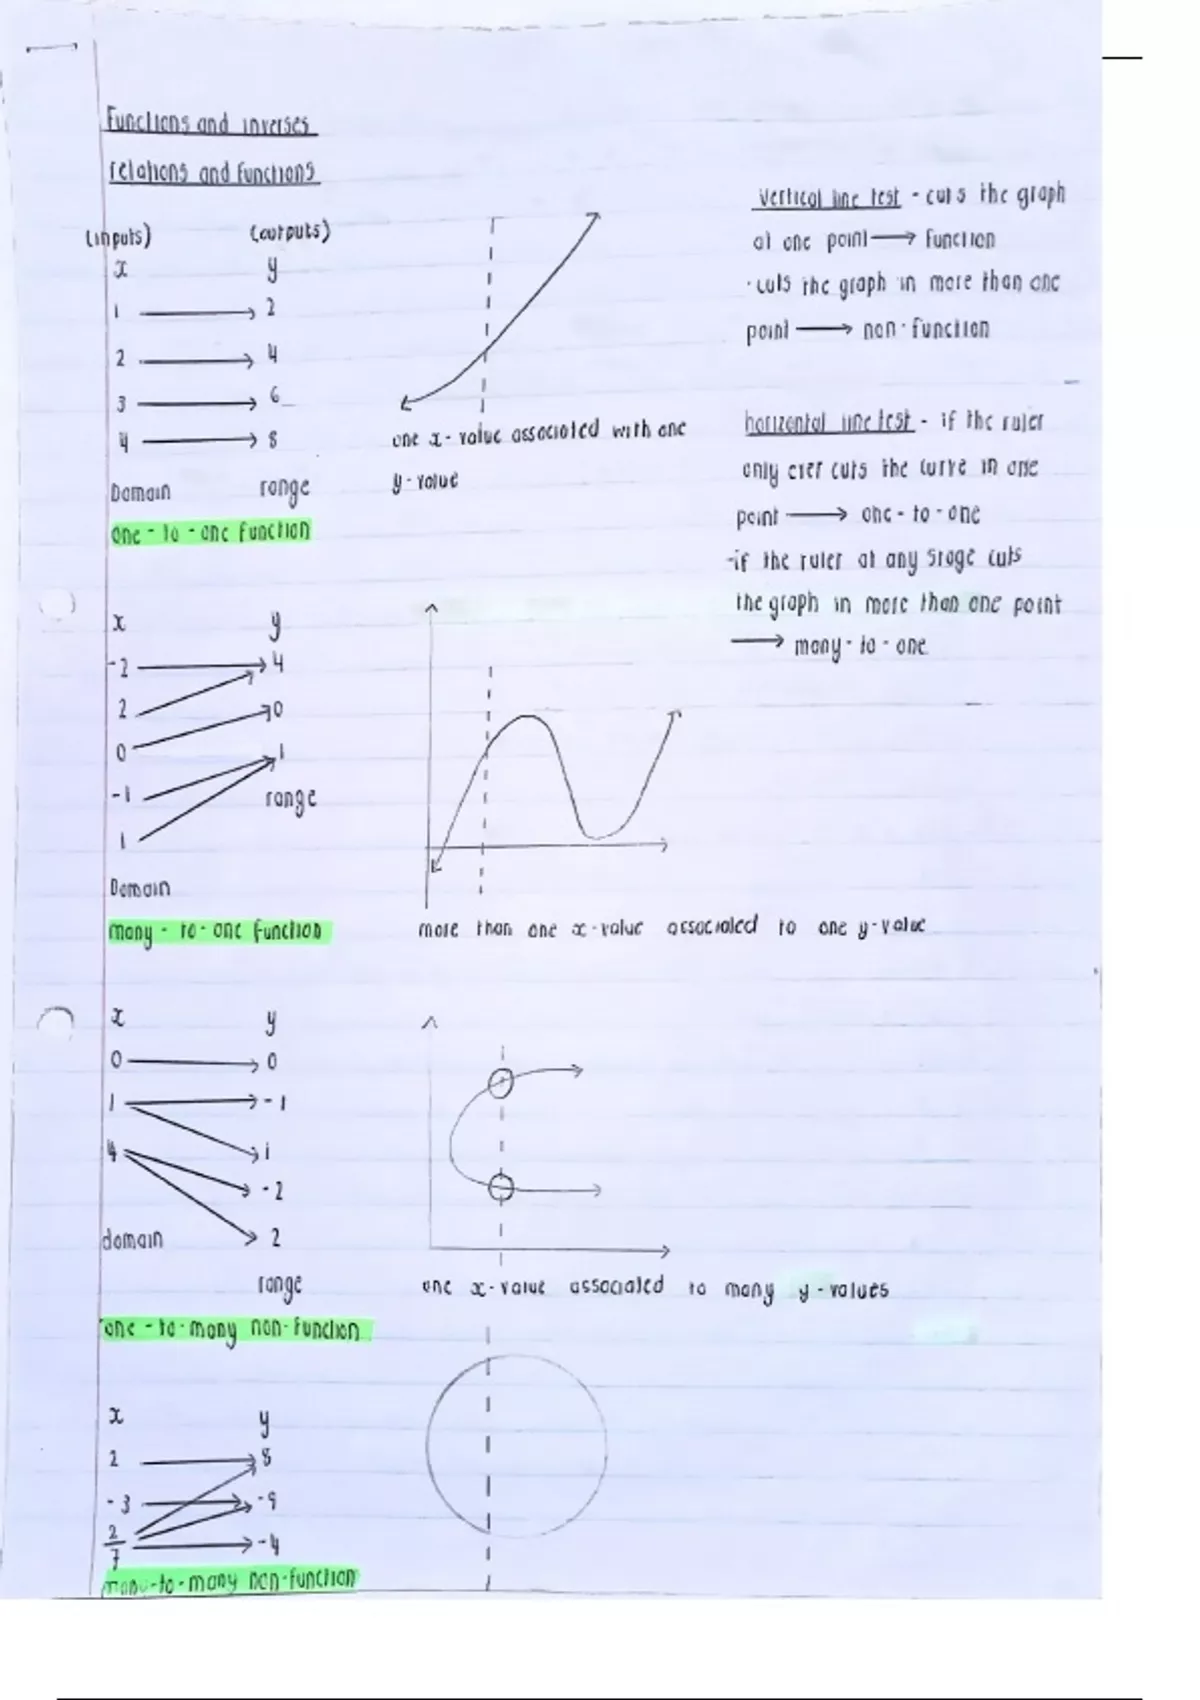 Functions and inverses
relations and functions
(inputs) (outputs)
x y
1 → 2
2 → 4
3 → 6
4 → 8
Domain range
one - to - one function
one x - value associated with one
y - value
vertical line test - cuts the graph
at one point → function
· cuts the graph in more than one
point → non - function
horizontal line test - if the ruler
only ever cuts the curve in one
point → one - to - one
-if the ruler at any stage cuts
the graph in more than one point
→ many - to - one
x y
-2 4
2 0
0 1
-1 range
1
Domain
many - to - one function
more than one x - value associated to one y - value
x y
0 0
1 -1
4 1
-2
domain 2
range
one - to - many non - function
one x - value associated to many y - values
x y
2 8
-3 -9
2/7 -4
many-to-many non-function